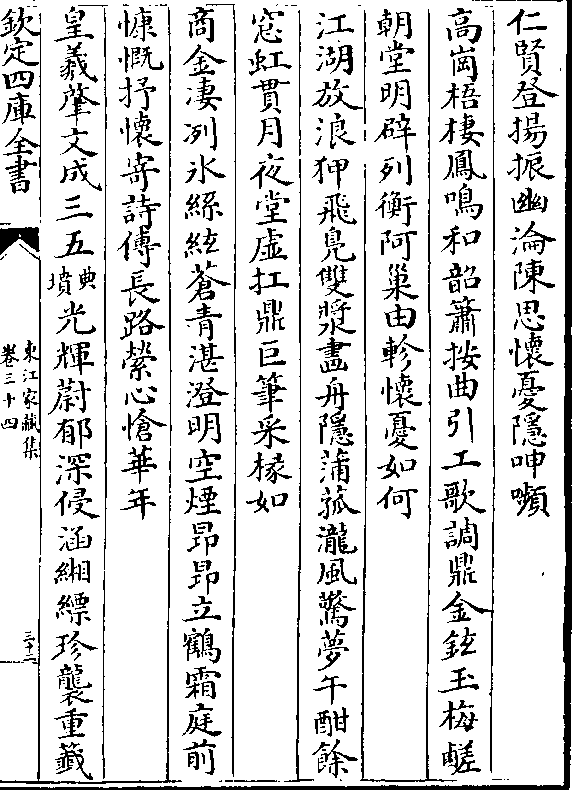 仁賢登揚振幽淪陳思懷憂隱呻嚬
高崗梧棲鳳鳴和韶簫按曲引工歌調鼎金鉉玉梅鹾
朝堂明辟列衡阿巢由軫懷憂如何
江湖放浪狎飛鳧雙槳畫舟隱蒲菰瀧風驚夢午酣餘
窓虹貫月夜堂虛扛鼎巨筆采椽如
商金凄冽氷絲絃蒼青湛澄明空煙昻昻立鶴霜庭前
慷慨抒懷寄詩傳長路縈心愴華年
皇羲肇文成三五典墳光輝蔚郁深侵涵緗縹珍襲重籖
欽定四庫全書
東江家藏集
卷三十四
三十二